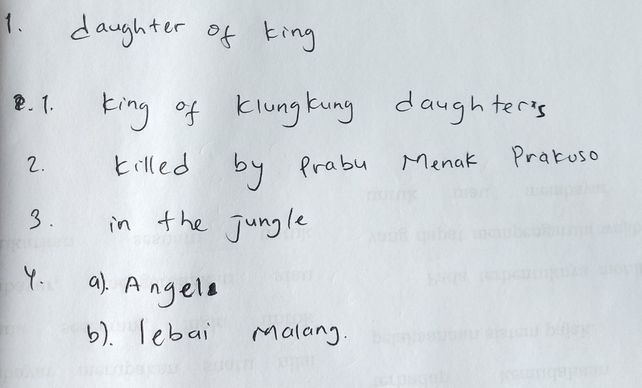 1. daughter of king
2. 1. king of klungkung daughter's
2. killed by Prabu Menak Prakoso
3. in the jungle
4. a). Angel
b). lebai Malang.